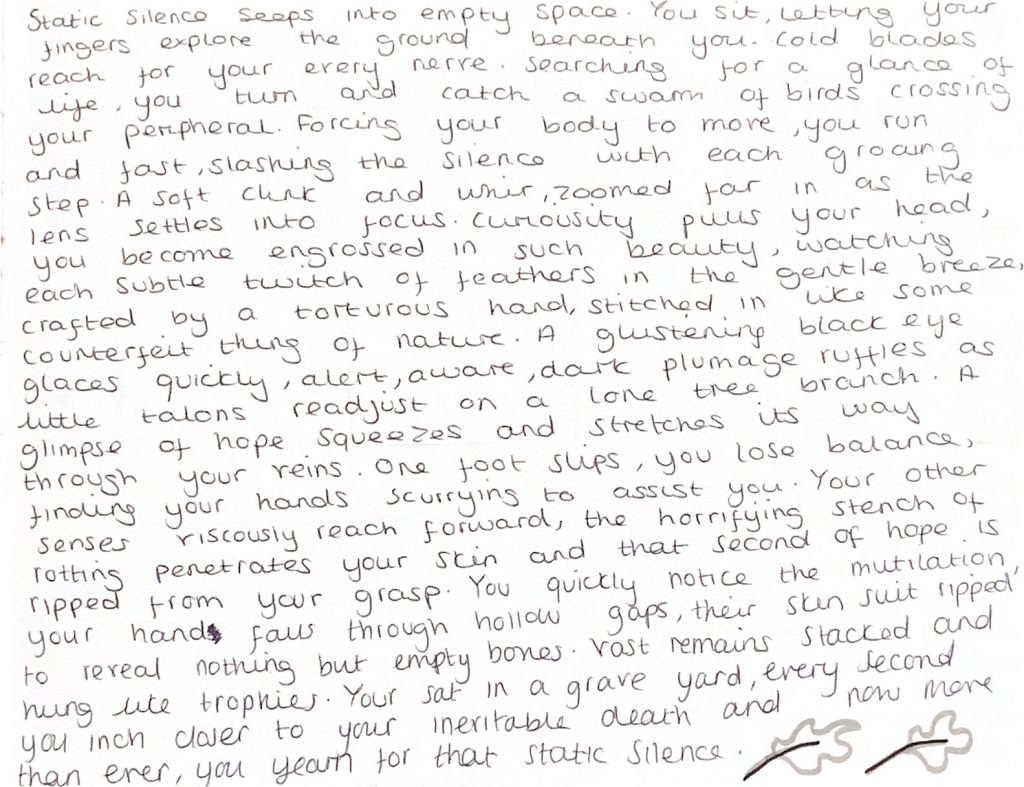 Static silence seeps into empty space. You sit, letting your
fingers explore the ground beneath you. Cold blades
reach for your every nerve. Searching for a glance of
life, you turn and catch a swarm of birds crossing
your peripheral. Forcing your body to move, you run
and fast, slashing the silence with each groaing
step. A soft clink and whir, zoomed far in as the
lens settles into focus. Curiousity pulls your head,
you become engrossed in such beauty, watching
each subtle twitch of feathers in the gentle breeze,
crafted by a torturous hand, stitched in like some
counterfeit thing of nature. A glustening black eye
glaces quickly, alert, aware, dark plumage ruffles as
little talons readjust on a lone tree branch. A
glimpse of hope squeezes and stretches its way
through your veins. One foot slips, you lose balance,
finding your hands scurrying to assist you. Your other
senses viscously reach forward, the horrifying stench of
rotting penetrates your skin and that second of hope is
ripped from your grasp. You quickly notice the mutilation,
your hand falls through hollow gaps, their skin suit ripped
to reveal nothing but empty bones. Vast remains stacked and
hung like trophies. Your sat in a grave yard, every second
you inch closer to your inevitable death and now more
than ever, you yearn for that static silence.